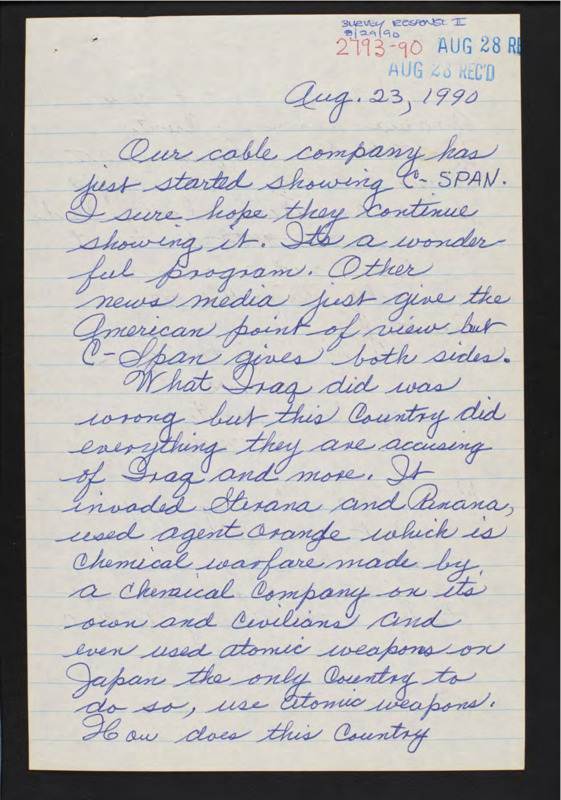 SURVEY RESPONSE II
8/29/90
2793-90 AUG 28 RE
AUG 28 REC'D
Aug. 23, 1990
Our cable company has
just started showing C-SPAN.
I sure hope they continue
showing it. Its a wonder-
ful program. Other
news media just give the
American point of view but
C-Span gives both sides.
What Iraq did was
wrong but this Country did
everything they are accusing
of Iraq and more. It
invaded and
used agent orange which is
chemical warfare made by
a chemical Company on its
own and Civilians and
even used atomic weapons on
Japan the only Country to
do so, use atomic weapons.
How does this Country